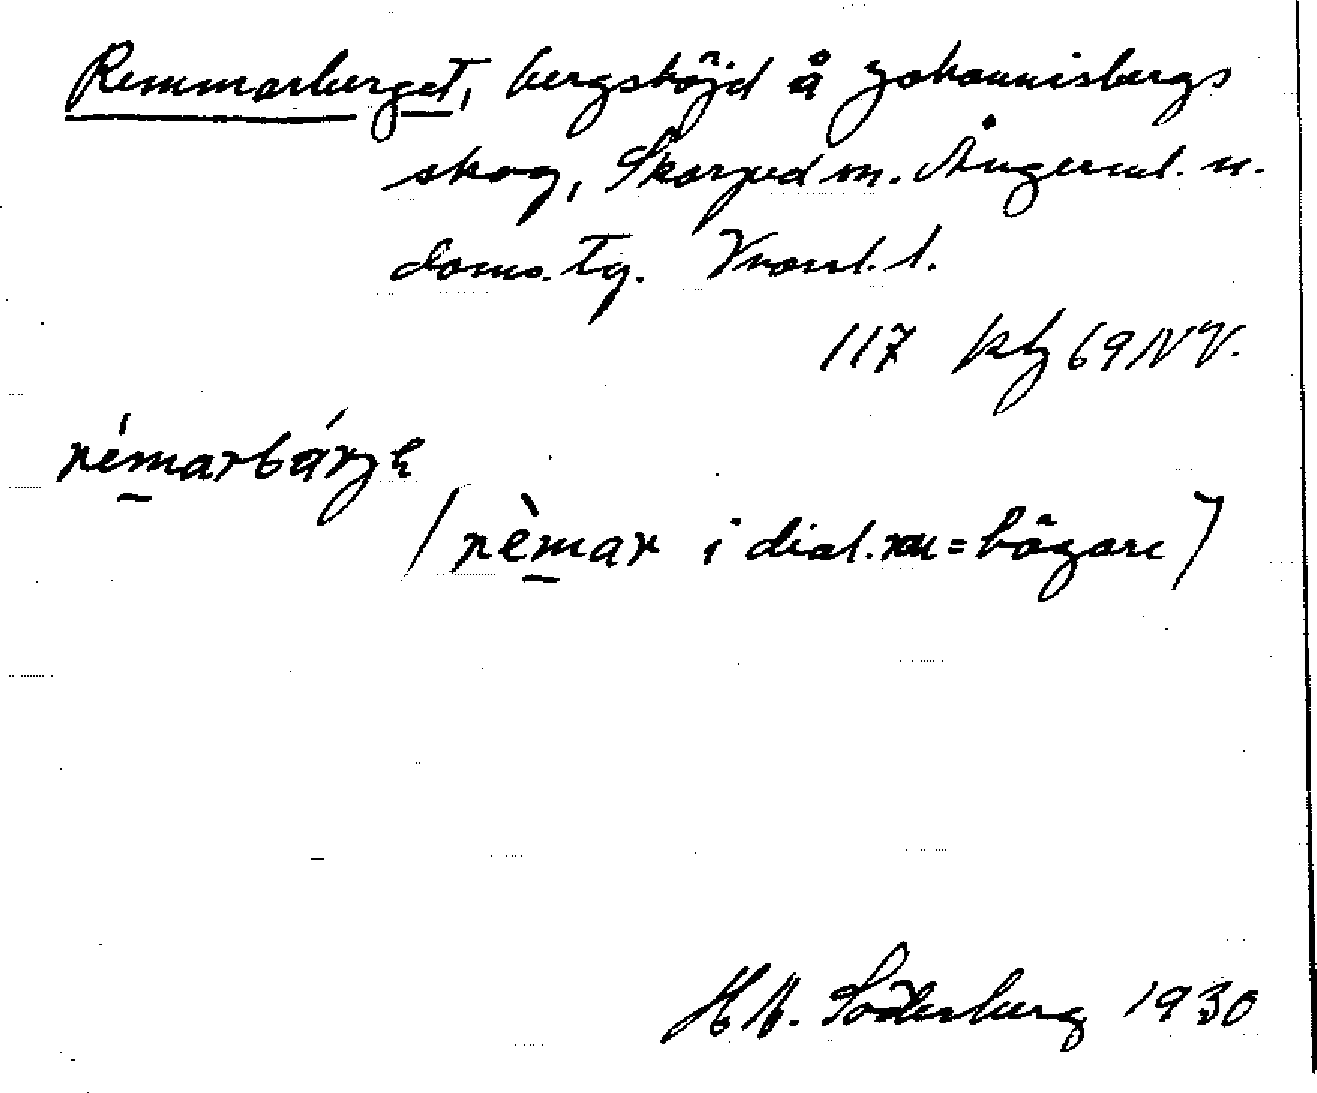 Remmarberget, bergshöjd å Johannisbergs
skog, Skorped sn. Ångerml. n.
doms. tg. Vnorrl. l.
117 kbl 69 NV.
rémarbárjə
(rèmar i dial. = bågare)
H M. Söderberg 1930